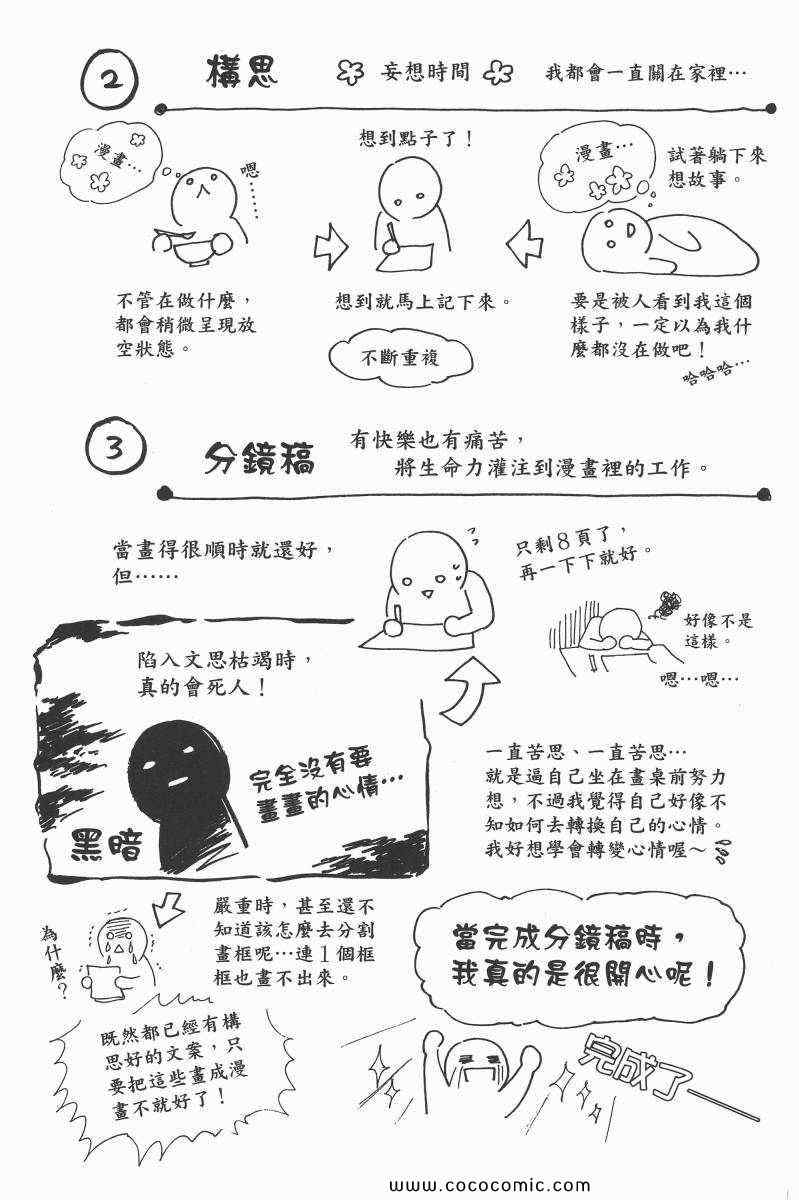 2
構思
妄想時間
我都會一直關在家裡…
漫畫…
嗯……
不管在做什麼，
都會稍微呈現放
空狀態。
想到點子了！
想到就馬上記下來。
不斷重複
漫畫…
試著躺下來
想故事。
要是被人看到我這個
樣子，一定以為我什
麼都沒在做吧！
哈哈哈…
3
分鏡稿
有快樂也有痛苦，
將生命力灌注到漫畫裡的工作。
當畫得很順時就還好，
但……
只剩8頁了，
再一下下就好。
好像不是
這樣。
嗯…嗯…
陷入文思枯竭時，
真的會死人！
完全沒有要
畫畫的心情…
黑暗
一直苦思、一直苦思…
就是逼自己坐在畫桌前努力
想，不過我覺得自己好像不
知如何去轉換自己的心情。
我好想學會轉變心情喔～
嚴重時，甚至還不
知道該怎麼去分割
畫框呢…連1個框
框也畫不出來。
為什麼？
既然都已經有構
思好的文案，只
要把這些畫成漫
畫不就好了！
當完成分鏡稿時，
我真的是很開心呢！
完成了——
www.cococomic.com